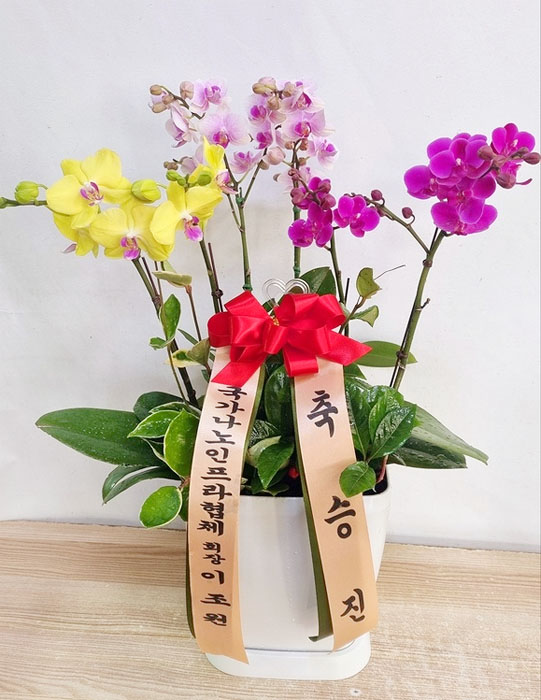 국가나노인프라협체 회장 이조원
축 승진